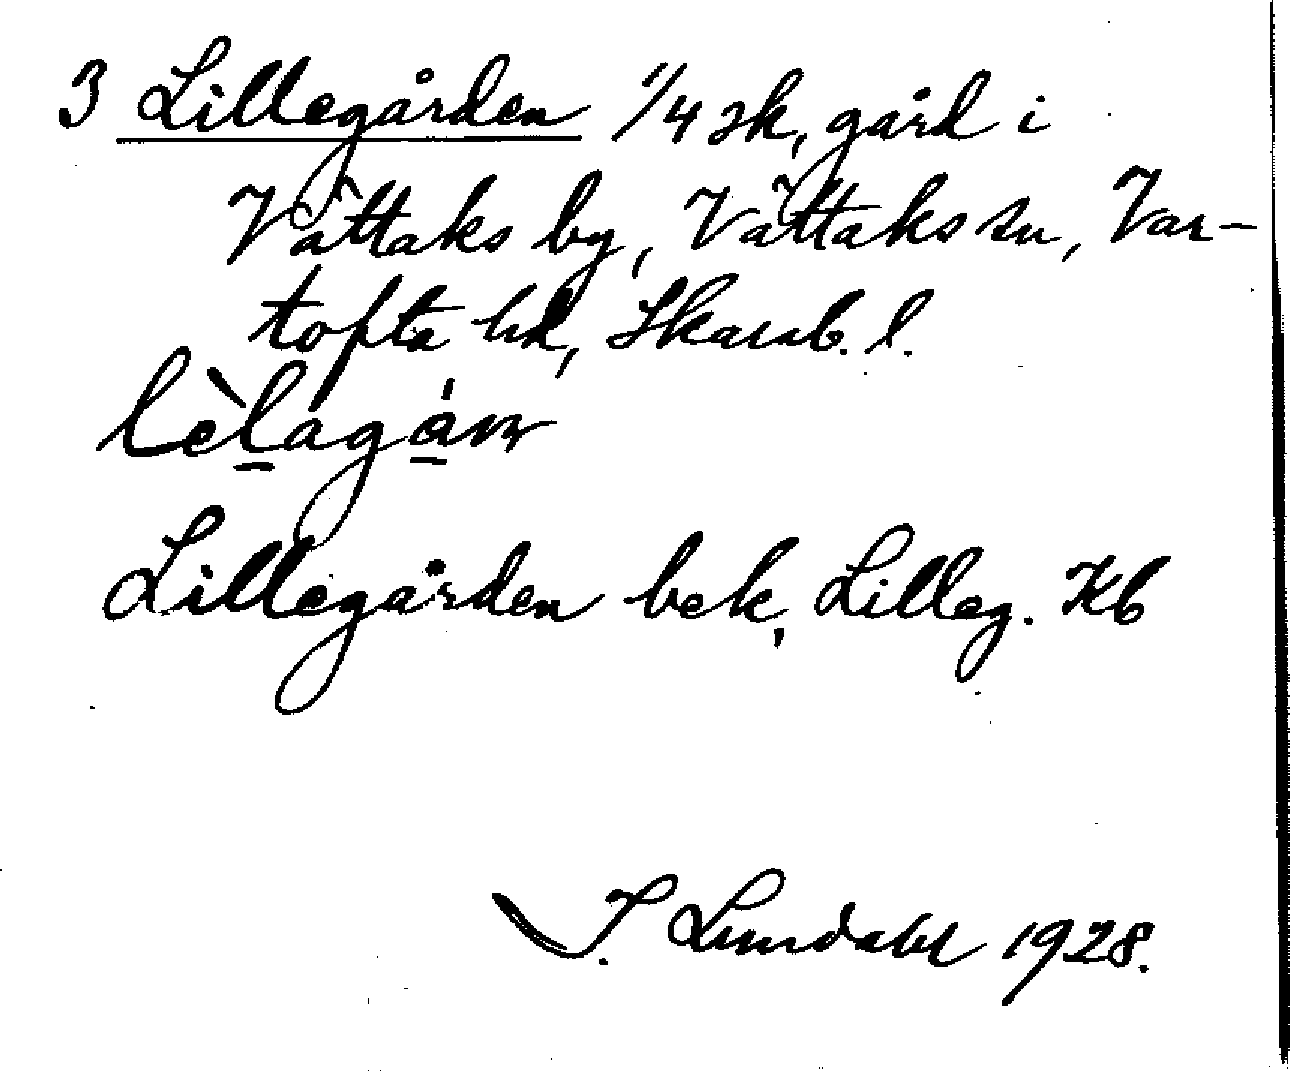 3 Lillegården 1/4 sk, gård i
Vättaks by, Vättaks sn, Var-
tofta hd, Skarab. l.
Lillegården bek, Lilleg. Kb
I. Lundahl 1928.